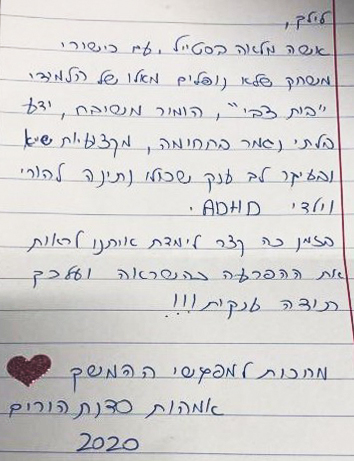 לילך,
אשה מלאה בסטייל, עם כישורי
משחק שלא נופלים מאלו של תלמידי
"בית צבי", הומור משובח, ידע
בלתי נגמר בתחומה, מקצועיות שיא
ובעיקר לב ענק שכולו נתינה להורי
וילדי ADHD.
בזמן כה קצר לימדת אותנו לראות
את ההפרעה כהשראה ועל כך
תודה ענקית!!!
מחכות למפגשי ההמשך
אמהות סדנת הורים
2020